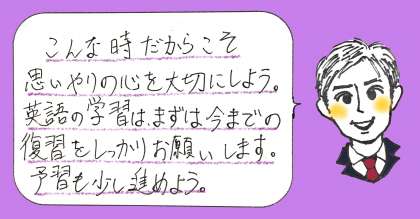 こんな時だからこそ
思いやりの心を大切にしよう。
英語の学習は、まずは今までの
復習をしっかりお願いします。
予習も少し進めよう。